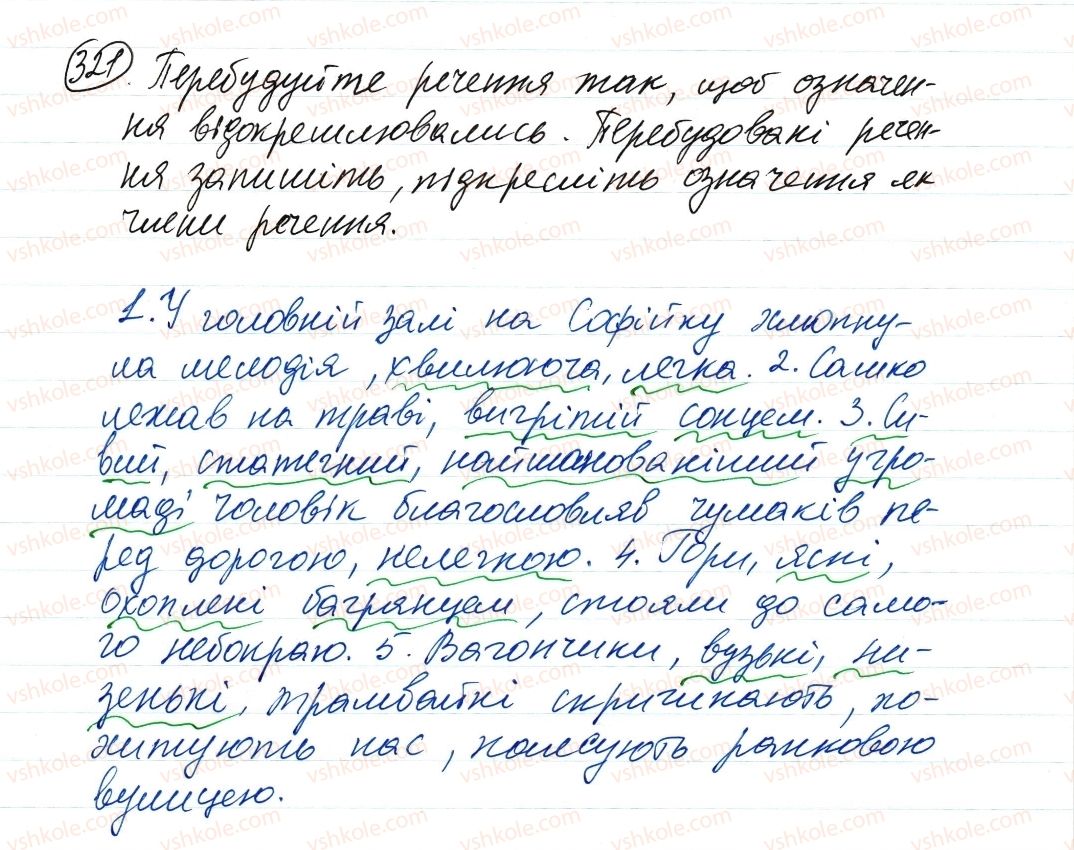 321. Перебудуйте речення так, щоб означен-
ня відокремлювались. Перебудовані речен-
ня запишіть, підкресліть означення як
члени речення.
1. У головній залі на Софійку хлюпну-
ла мелодія, хвилююча, легка. 2. Сашко
лежав на траві, вигрітій сонцем. 3. Си-
вий, статечний, найшанованіший у гро-
маді чоловік благословляв чумаків пе-
ред дорогою, нелегкою. 4. Гори, ясні,
охоплені багрянцем, стояли до само-
го небокраю. 5. Вагончики, вузькі, ни-
зенькі, трамвайні скрична́ють, по-
хитують нас, колесують ранковою
вулицею.